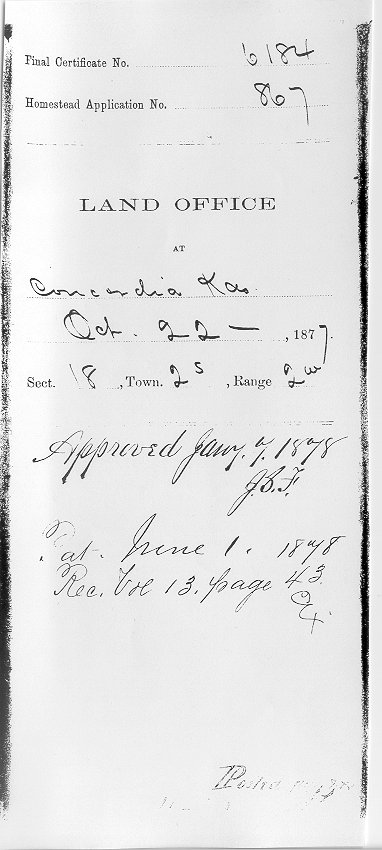 Final Certificate No. 6184
Homestead Application No. 867
LAND OFFICE
AT
Concordia Kas.
Oct. 22 —, 1877.
Sect. 18, Town. 2 S, Range 2 W
Approved Jany. 7. 1878
J.B.F.
Pat. June 1. 1878
Rec. Vol 13. page 43